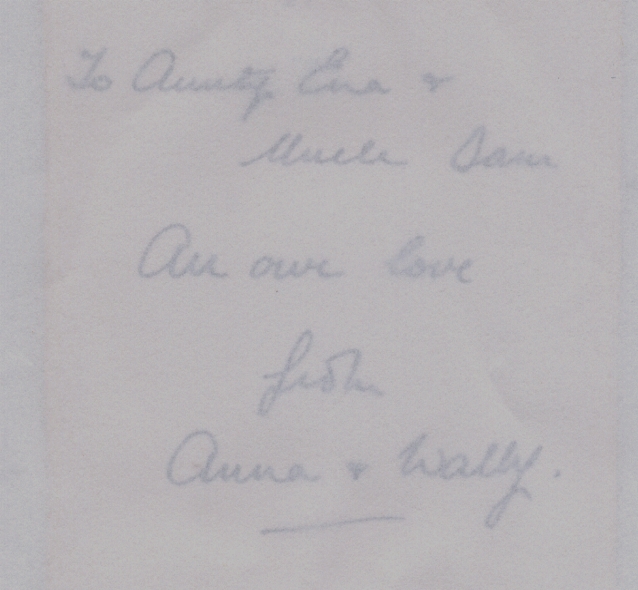 To Aunty Ena &
Uncle Sam
All our love
from
Anna & Wally.